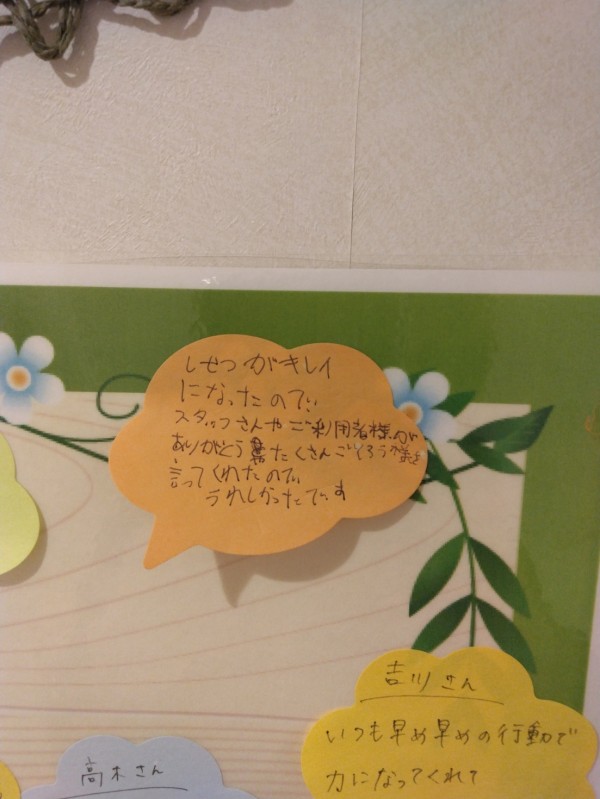 しせつがキレイ
になったので
スタッフさんやご利用者様が
ありがとう たくさんごくろう様を
言ってくれたので
うれしかったです
吉川さん
いつも早め早めの行動で
力になってくれて
高木さん